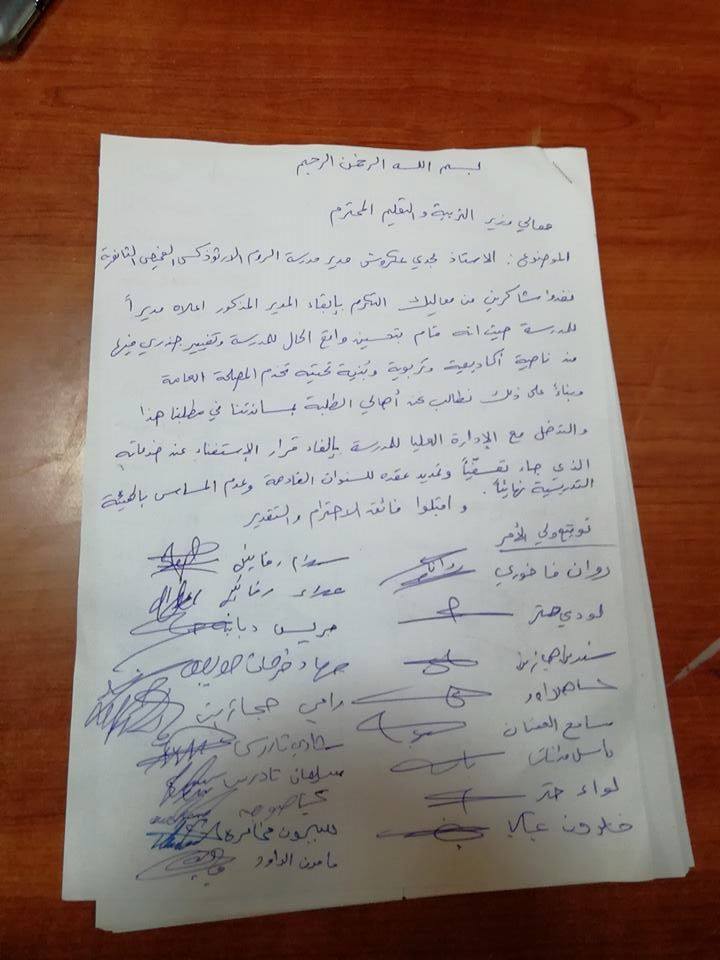 بسم الله الرحمن الرحيم
معالي وزير التربية والتعليم المحترم
الموضوع: الاستاذ مجدي عكروش مدير مدرسة الروم الارثوذكس الفحيص الثانوية
نغدوا شاكرين من معاليك التكرم بإبقاء المدير المذكور اعلاه مديراً
للمدرسة حيث انه قام بتحسين واقع الحال للمدرسة وتغيير جذري فيها
من ناحية أكاديمية وتربوية وبُنية تحتية تخدم المصلحة العامة
وبناءً على ذلك نطالب نحن أهالي الطلبة بمساندتنا في مطلبنا هذا
والتدخل مع الإدارة العليا للمدرسة بإلغاء قرار الإستغناء عن خدماته
الذي جاء تعسفياً وتمديد عقده للسنوان القادمة وعدم المساس بالهيئة
التدريسية نهائياً.
واقبلوا فائقة الاحترام والتقدير
توقيع ولي الأمر
روان فاخوري
لودي حتر
سندس حجازين
سامع
لواء حتر
خلدون
جريس دبابنه
رامي حجازين
شادي تادرس
سلمان تادرس
مامون الداود